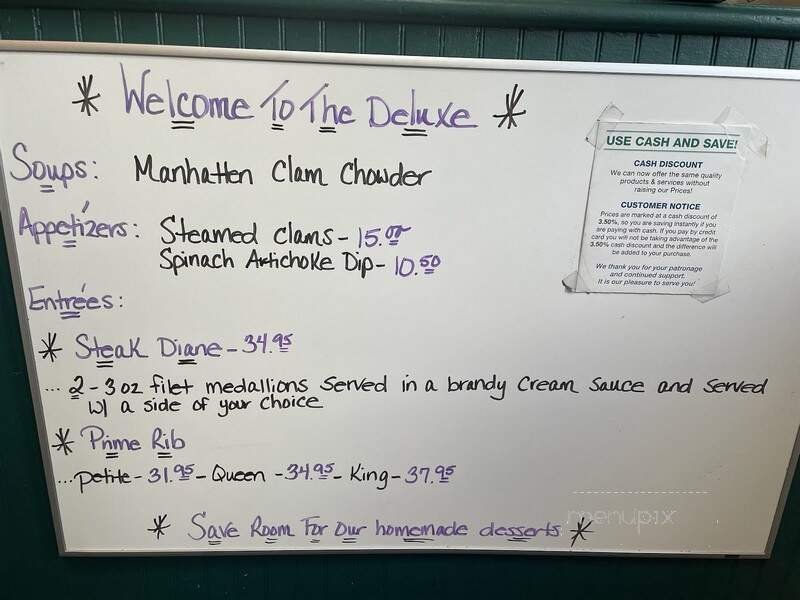 * Welcome To The Deluxe *
Soups: Manhatten Clam Chowder
Appetizers: Steamed Clams - 15.00
Spinach Artichoke Dip - 10.50
Entrées:
* Steak Diane - 34.95
... 2 - 3 oz filet medallions served in a brandy cream sauce and served
w/ a side of your choice
* Prime Rib
... petite - 31.95 - Queen - 34.95 - King - 37.95
* Save Room For Our homemade desserts *
USE CASH AND SAVE!
CASH DISCOUNT
We can now offer the same quality
products & services without
raising our Prices!
CUSTOMER NOTICE
Prices are marked at a cash discount of
3.50%, so you are saving instantly if you
are paying with cash. If you pay by credit
card you will not be taking advantage of the
3.50% cash discount and the difference will
be added to your purchase.
We thank you for your patronage
and continued support.
It is our pleasure to serve you!
menupix